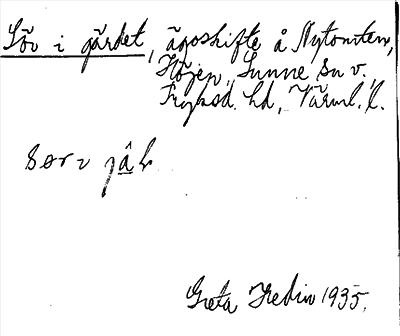 Söv i gärdet, ägoskifte å Nytomten,
Höjen, Sunne sn v.
Fryksd. hd, Värml. l.
Greta Hedin 1935.